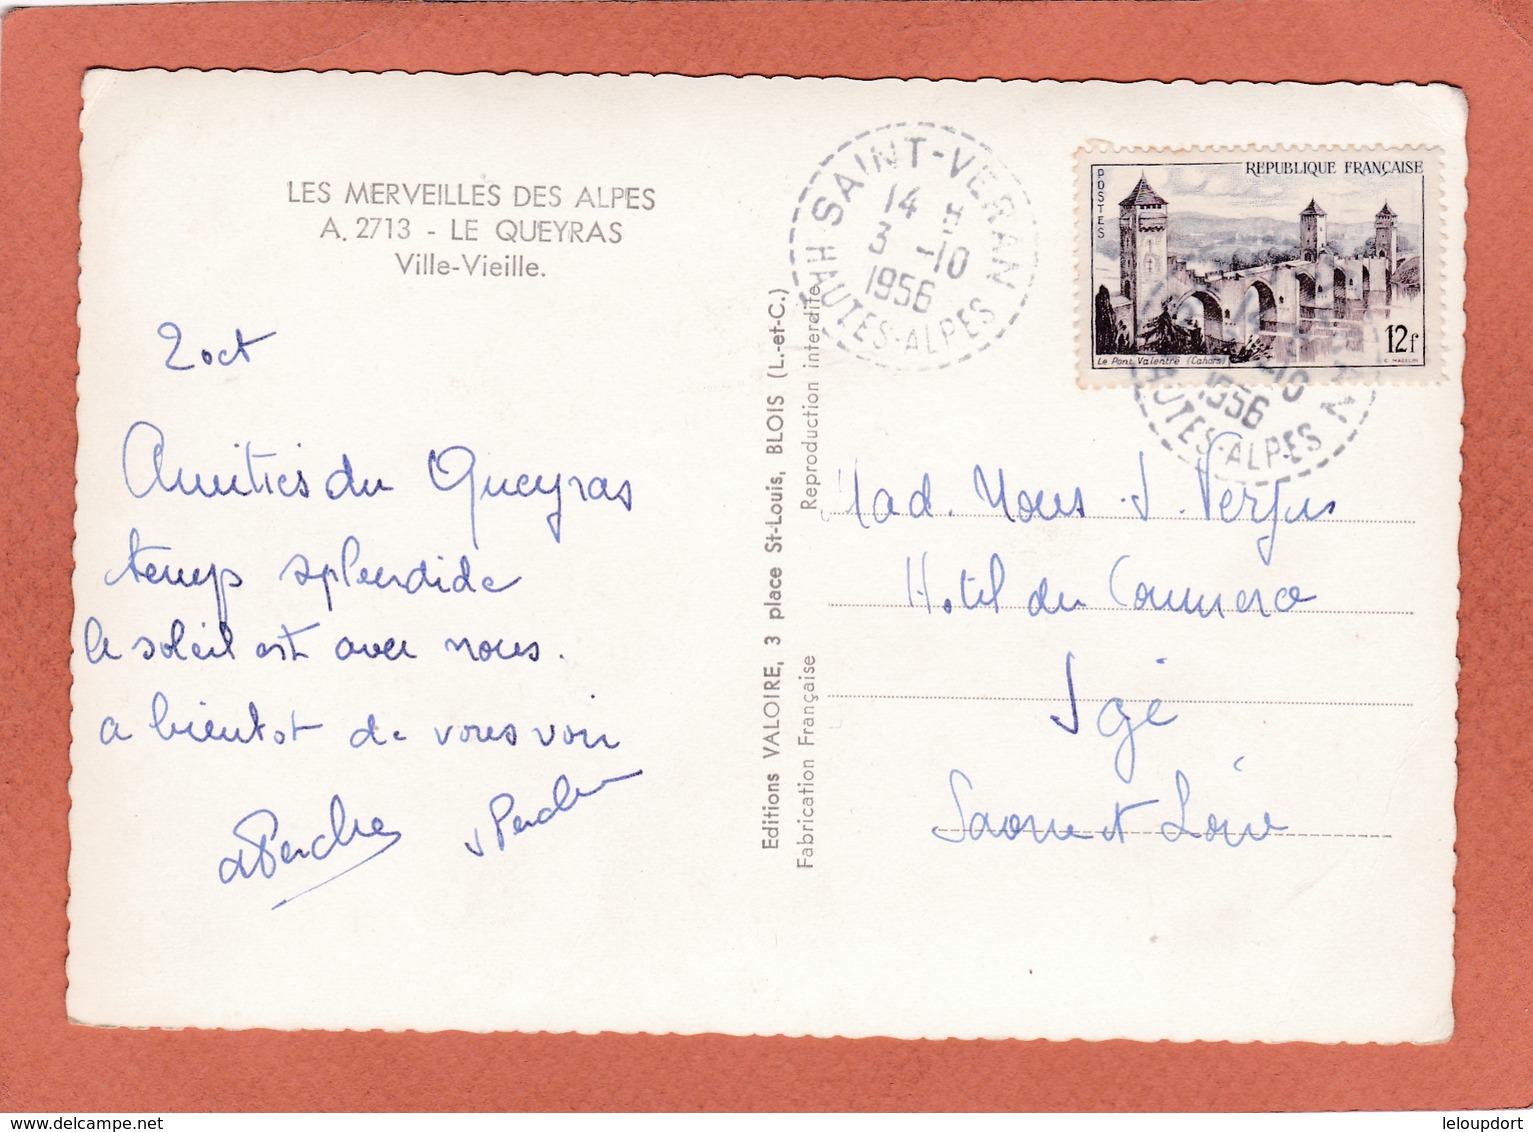 LES MERVEILLES DES ALPES
A. 2713 - LE QUEYRAS
Ville-Vieille.
2 oct
Amitiés du Queyras
temps splendide
le soleil est avec nous.
a bientot de vous voir
Editions VALOIRE, 3 place St-Louis, BLOIS (L.-et-C.)
Fabrication Française
Reproduction interdite
SAINT-VERAN
14 H
3 -10
1956
HAUTES-ALPES
REPUBLIQUE FRANÇAISE
POSTES
12f
Le Pont Valentré (Cahors)
1956
HAUTES-ALPES
Mad. Mons. J. Verjus
Hotel du Commerce
Igé
Saone et Loire
delcampe.net
leloupdort